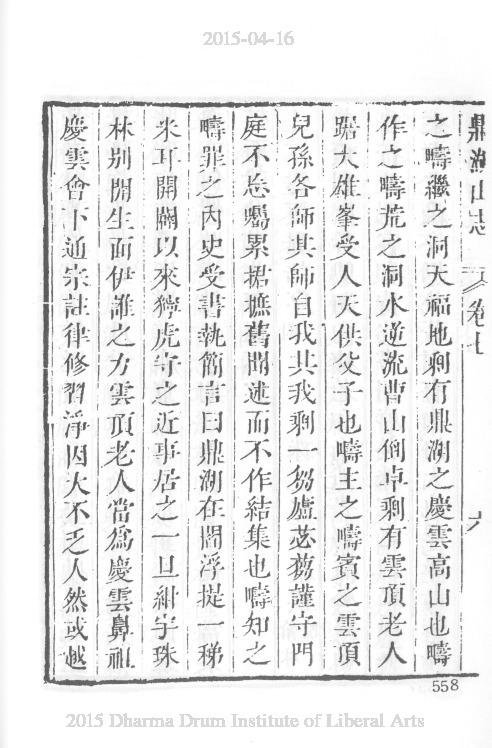 2015-04-16
鼎湖山志 卷七 六
之疇繼之洞天福地剩有鼎湖之慶雲高山也疇
作之疇荒之洞水逆流曹山倒卓剩有雲頂老人
踞大雄峯受人天供父子也疇主之疇賓之雲頂
兒孫各師其師自我其我剩一芻廬苾蒭謹守門
庭不忘囑累捃摭舊聞述而不作結集也疇知之
疇罪之內史受書執簡言曰鼎湖在閻浮提一稊
米耳開闢以來獰虎守之近事居之一旦紺宇珠
林別開生面伊誰之力雲頂老人當爲慶雲鼻祖
慶雲會下通宗註律修習淨因大不乏人然或越
558
2015 Dharma Drum Institute of Liberal Arts